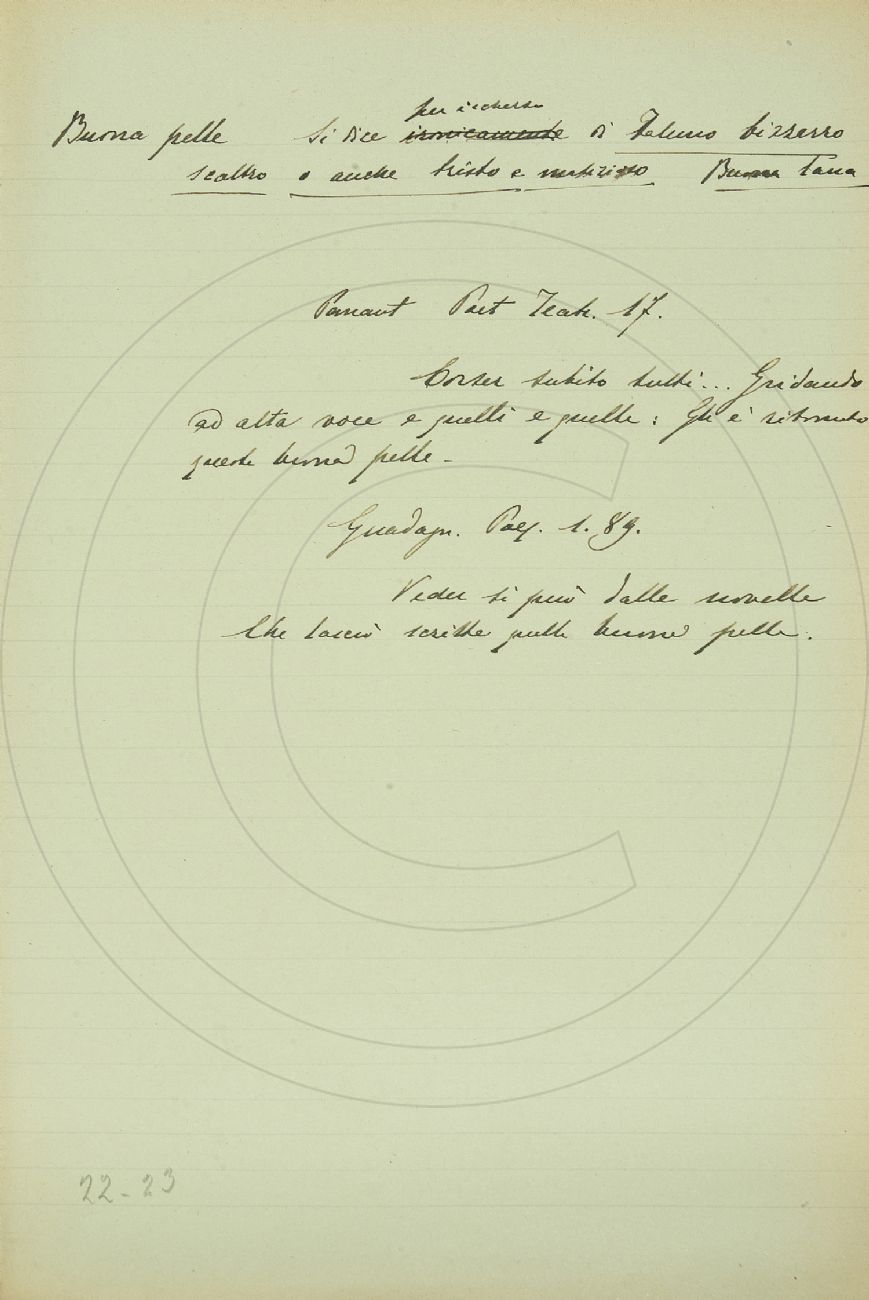 Buona pelle Si dice per ischerzo ironicamente di Taluno bizzarro
scaltro o anche tristo e malizioso Buona lana
Pananti Poet Teatr. 17.
Corser subito tutti... Gridando
ad alta voce e quelli e quelle: Gli è ritornato
questa buona pelle -
Guadagn. Poes. 1. 89.
Veder si può dalle novelle
Che lasciò scritte quella buona pelle.
22-23